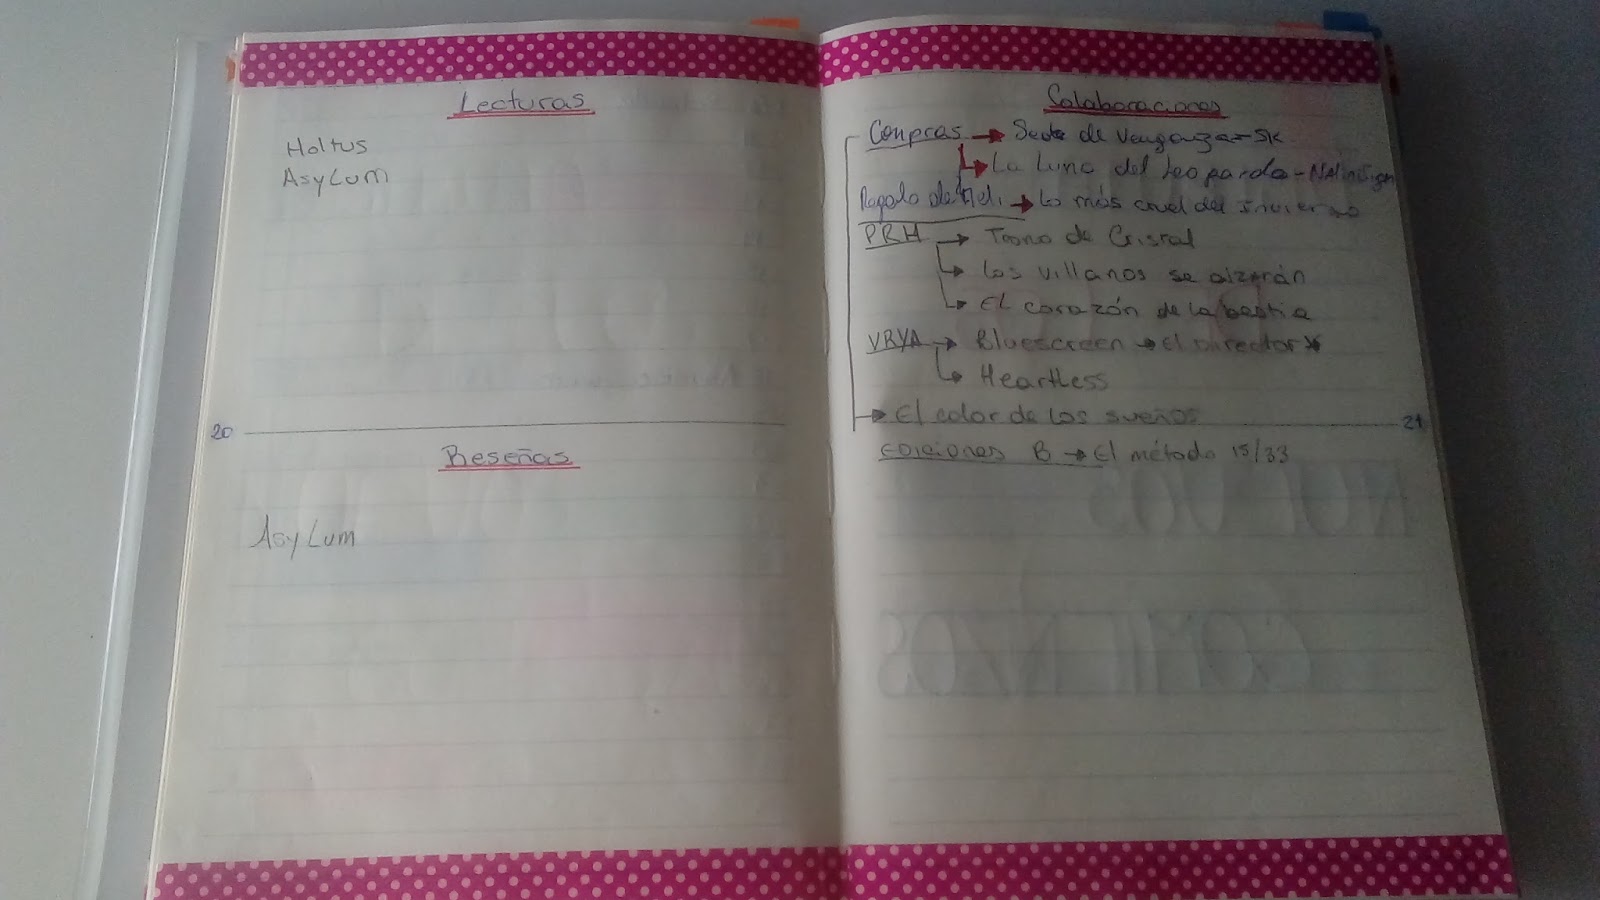 Lecturas
Holtus
Asylum
20
Reseñas
Asylum
Colaboraciones
Compras → Sed de Venganza - SK
→ La Luna del Leopardo - Nalini Singh
Regalo de Meli → Lo más cruel del Invierno
PRH → Trono de Cristal
→ Los villanos se alzarán
→ El corazón de la bestia
VRYA → Bluescreen → El Director *
→ Heartless
→ El color de los sueños
21
Ediciones B → El método 15/33
NUEVOS
COMIENZOS